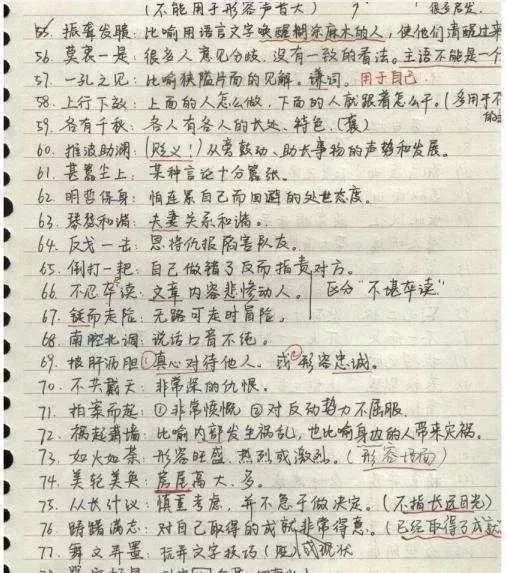 (不能用于形容声音大)
55. 振聋发聩：比喻用语言文字唤醒糊涂麻木的人，使他们清醒过来
56. 莫衷一是：很多人意见分歧，没有一致的看法。主语不能是一个
57. 一孔之见：比喻狭隘片面的见解。谦词。用于自己.
58. 上行下效：上面的人怎么做，下面的人就跟着怎么干。(多用于不
59. 各有千秋：各人有各人的长处、特色。(褒)
60. 推波助澜：(贬义！)从旁鼓动、助长事物的声势和发展。
61. 甚嚣尘上：某种言论十分嚣张。
62. 明哲保身：怕连累自己而回避的处世态度。
63. 琴瑟和谐：夫妻关系和谐。
64. 反戈一击：恩将仇报陷害队友。
65. 倒打一耙：自己做错了反而指责对方。
66. 不忍卒读：文章内容悲惨动人。 区分“不堪卒读”
67. 铤而走险：无路可走时冒险。
68. 南腔北调：说话口音不纯。
69. 披肝沥胆①真心对待他人。或②形容忠诚。
70. 不共戴天：非常深的仇恨。
71. 拍案而起：①非常愤慨 ②对反动势力不屈服.
72. 祸起萧墙：比喻内部发生祸乱，也比喻身边的人带来灾祸。
73. 如火如荼：形容旺盛、热烈或激烈。(形容场面)
74. 美轮美奂：房屋高大、多。
75. 从长计议：慎重考虑，并不急于做决定。(不指长远目光)
76. 踌躇满志：对自己取得的成就非常得意。(已经取得了成就
77. 舞文弄墨：玩弄文字技巧(贬)或现状